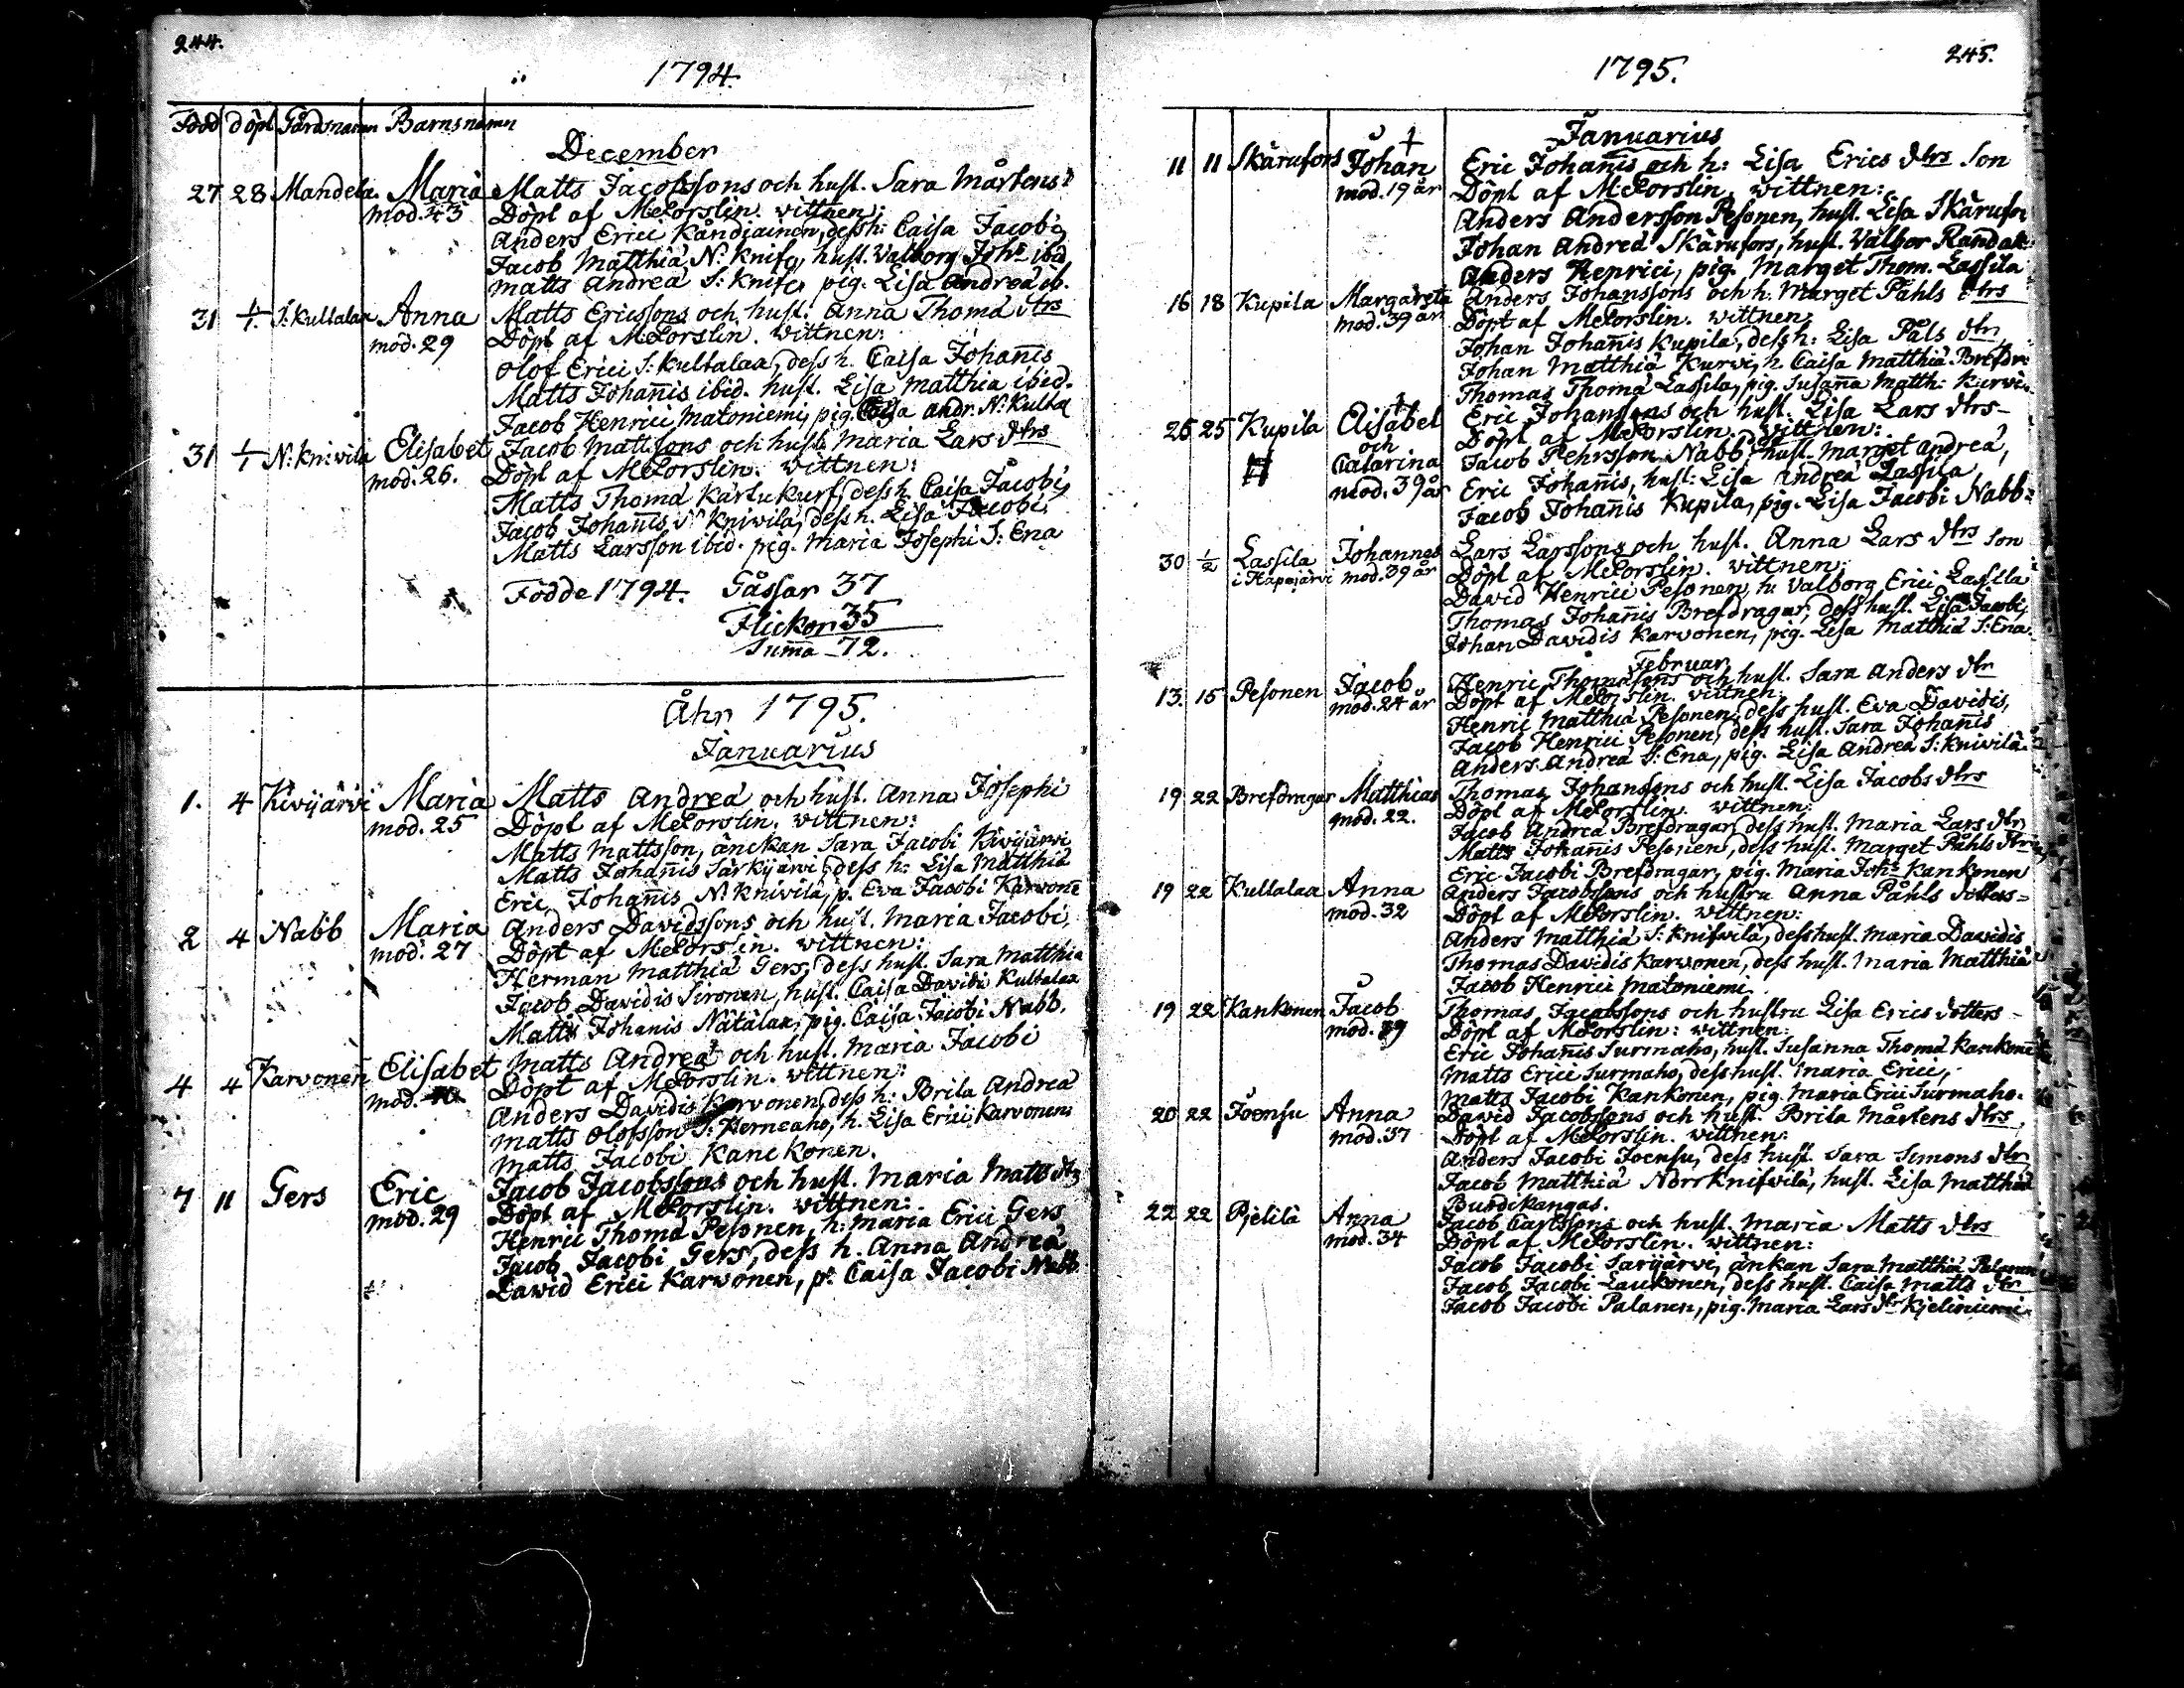 244.
1794.
Född döpt Gårdsnamn Barnsnamn
December
27 28 Mandela Maria Matts Jacobssons och hust. Sara Mårtens
mod. 43 Döpt af M Forslin. vittnen:
Anders Erici Kåndiainen, dess h: Caisa Jacobi,
Jacob Matthiä N: Knif, hust. Valborg Joh: ibid
Matts Andreä S: Knif, pig. Lisa Andreä ib.
31 1/1 S: Kultalax Anna Matts Ericssons och hust. Anna Thomä dtrs
mod. 29 Döpt af M Forslin. vittnen:
Olof Erici S: Kultalaa, dess h. Caisa Johannis
Matts Johannis ibid. hust. Lisa Matthiä ibid.
Jacob Henrici Matoniemi, pig. Caisa Andr. N: Kultal
31 1/1 N: Knivila Elisabet Jacob Mattsons och hust. Maria Lars dtrs
mod. 26. Döpt af M Forslin. vittnen:
Matts Thomä Kartukurf, dess h. Caisa Jacobi,
Jacob Johannis N Knivila, dess h. Lisa Jacobi,
Matts Larsson ibid. pig. Maria Josephi S: Ena
Födde 1794. Gåssar 37
Flickor 35
Summa 72.
Åhr 1795.
Januarius
1. 4 Kivijärvi Maria Matts Andreä och hust. Anna Josephi
mod. 25 Döpt af M Forslin. vittnen:
Matts Mattsson, änckan Sara Jacobi Kivijärvi
Matts Johannis Särkijärvi, dess h: Lisa Matthiä
Eric Johannis N: Knivila, p. Eva Jacobi Karvone
2 4 Nabb Maria Anders Davidssons och hust. Maria Jacobi,
mod. 27 Döpt af M Forslin. vittnen:
Herman Matthiä Gers, dess hust. Sara Matthiä
Jacob Davidis Sironen, hust. Caisa Davidis Kultalax
Matts Johanis Nätälax, pig. Caisa Jacobi Nabb.
4 4 Karvonen Elisabet Matts Andreä och hust. Maria Jacobi
mod. Döpt af M Forslin. vittnen:
Anders Davidis Karvonen, dess h: Brita Andreä
Matts Olofsson S: Herneaho, h. Lisa Erici Karvonen
Matts Jacobi Kanckonen.
7 11 Gers Eric Jacob Jacobssons och hust. Maria Matts dtr
mod. 29 Döpt af M Forslin. vittnen:
Henric Thomä Pesonen, h: Maria Erici Gers
Jacob Jacobi Gers, dess h. Anna Andreä
David Erici Karvonen, p: Caisa Jacobi Nabb
245.
1795.
Januarius
11 11 Skärufors Johan Eric Johannis och h: Lisa Erics dtrs Son
mod. 19 år Döpt af M Forslin, vittnen:
Anders Andersson Pesonen, hust. Lisa Skärufor
Johan Andreä Skärufors, hust. Valbor Randal
Anders Henrici, pig. Marget Thom. Lassila
16 18 Kupila Margareta Anders Johanssons och h. Marget Påhls dtrs
mod. 39 år Döpt af M Forslin. vittnen:
Johan Johannis Kupila, dess h: Lisa Påls dtr
Johan Matthiä Kurvi, h. Caisa Matthiä Brefdr:
Thomas Thomä Lassila, pig. Susanna Matth: Kurvi
25 25 Kupila Elisabet Eric Johanssons och hust. Lisa Lars dtrs
och Döpt af M Forslin. vittnen:
Catarina Jacob Pehrsson Nabb, dess hust. Marget Andreä,
mod. 39 år Eric Johannis, hust: Lisa Andreä Lassila,
Jacob Johannis Kupila, pig. Lisa Jacobi Nabb:
30 1/2 Lassila Johannes Lars Larssons och hust. Anna Lars dtrs Son
i Hapajärvi mod. 39 år Döpt af M Forslin. vittnen:
David Henrici Pesonen, h: Valborg Erici Lassila
Thomas Johannis Brefdragar, dess hust. Lisa Jacobi,
Johan Davidis Karvonen, pig. Lisa Matthiä S: Ena
Februar
13. 15 Pesonen Jacob Henric Thomasons och hust. Sara Anders dtr
mod. 24 år Döpt af M Forslin. vittnen:
Henric Matthiä Pesonen, dess hust. Eva Davidis,
Jacob Henrici Pesonen, dess hust. Sara Johannis
Anders Andreä S: Ena, pig. Lisa Andreä S: Knivilä.
19 22 Brefdragar Matthias Thomas Johanssons och hust. Lisa Jacobs dtrs
mod. 22. Döpt af M Forslin. vittnen:
Jacob Andreä Brefdragar, dess hust. Maria Lars dtr
Matts Johanis Pesonen, dess hust. Marget Påhls dtr
Eric Jacobi Brefdragar, pig. Maria Joh: Kankonen
19 22 Kullalaa Anna Anders Jacobssons och hustru Anna Påhls dotters
mod. 32 Döpt af M Forslin. vittnen:
Anders Matthiä S: Knifvilä, dess hust. Maria Davidis
Thomas Davidis Karvonen, dess hust. Maria Matthiä
Jacob Henrici Matoniemi
19 22 Kankonen Jacob Thomas Jacobssons och hustru Lisa Erics dotters
mod. 39 Döpt af M Forslin: vittnen:
Eric Johannis Surmaho, hust. Susanna Thomä Kankone
Matts Erici Surmaho, dess hust. Maria Erici,
Matts Jacobi Kankonen, pig. Maria Erici Surmaho.
20 22 Joensu Anna David Jacobssons och hust. Brita Mårtens dtrs
mod. 37 Döpt af M Forslin. vittnen:
Anders Jacobi Joensu, dess hust. Sara Simons dtr
Jacob Matthiä Norr Knifvilä, hust. Lisa Matthiä
Burdikangas.
22 22 Pjelilä Anna Jacob Carlssons och hust. Maria Matts dtrs
mod. 34 Döpt af M Forslin. vittnen:
Jacob Jacobi Sarijärvi, änkan Sara Matthiä Palanen
Jacob Jacobi Laukonen, dess hust. Caisa Matts dtr
Jacob Jacobi Palanen, pig. Maria Lars dtr Kjeliniemi